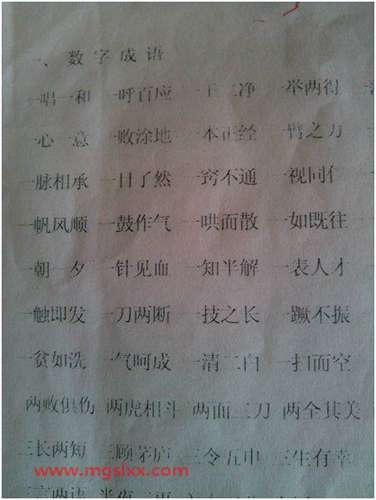 一、数字成语
一唱一和 一呼百应 一干二净 一举两得
一心一意 一败涂地 一本正经 一臂之力
一脉相承 一目了然 一窍不通 一视同仁
一帆风顺 一鼓作气 一哄而散 一如既往
一朝一夕 一针见血 一知半解 一表人才
一触即发 一刀两断 一技之长 一蹶不振
一贫如洗 一气呵成 一清二白 一扫而空
两败俱伤 两虎相斗 两面三刀 两全其美
三长两短 三顾茅庐 三令五申 三生有幸
www.mgslxx.com
三言两语 半夜三更